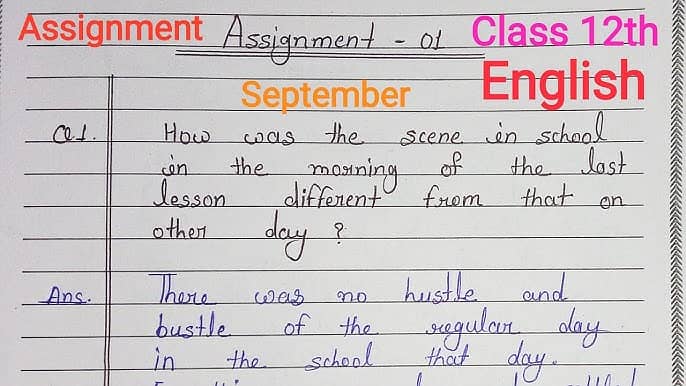 Assignment Assignment - 01 Class 12th
September English
Q1. How was the scene in school
in the morning of the last
lesson different from that on
other day ?
Ans. There was no hustle and
bustle of the regular day
in the school that day.